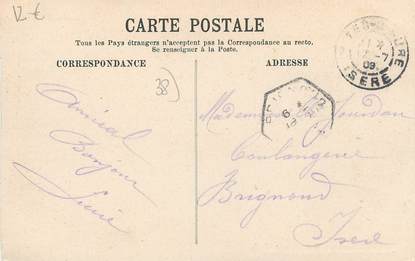 12 €
CARTE POSTALE
Tous les Pays étrangers n'acceptent pas la Correspondance au recto.
Se renseigner à la Poste.
CORRESPONDANCE
ADRESSE
38)
09
ISÈRE
6
Amical
Bonjour
Mademoiselle Jourdan
Boulangerie
Brignoud
Isère